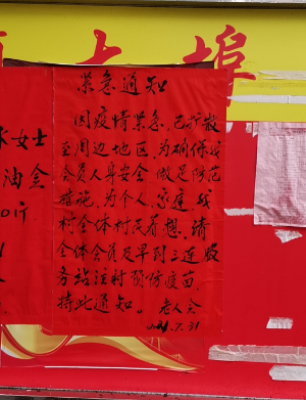 大埠
紧急通知
因疫情紧急,已扩散
至周边地区,为确保我
会员人身安全,做足防范
措施,为个人、家庭、我
村全体村民着想,请
全体会员及早到三连服
务站注射预防疫苗,
特此通知。 老人会
2021.7.31
女士
油金